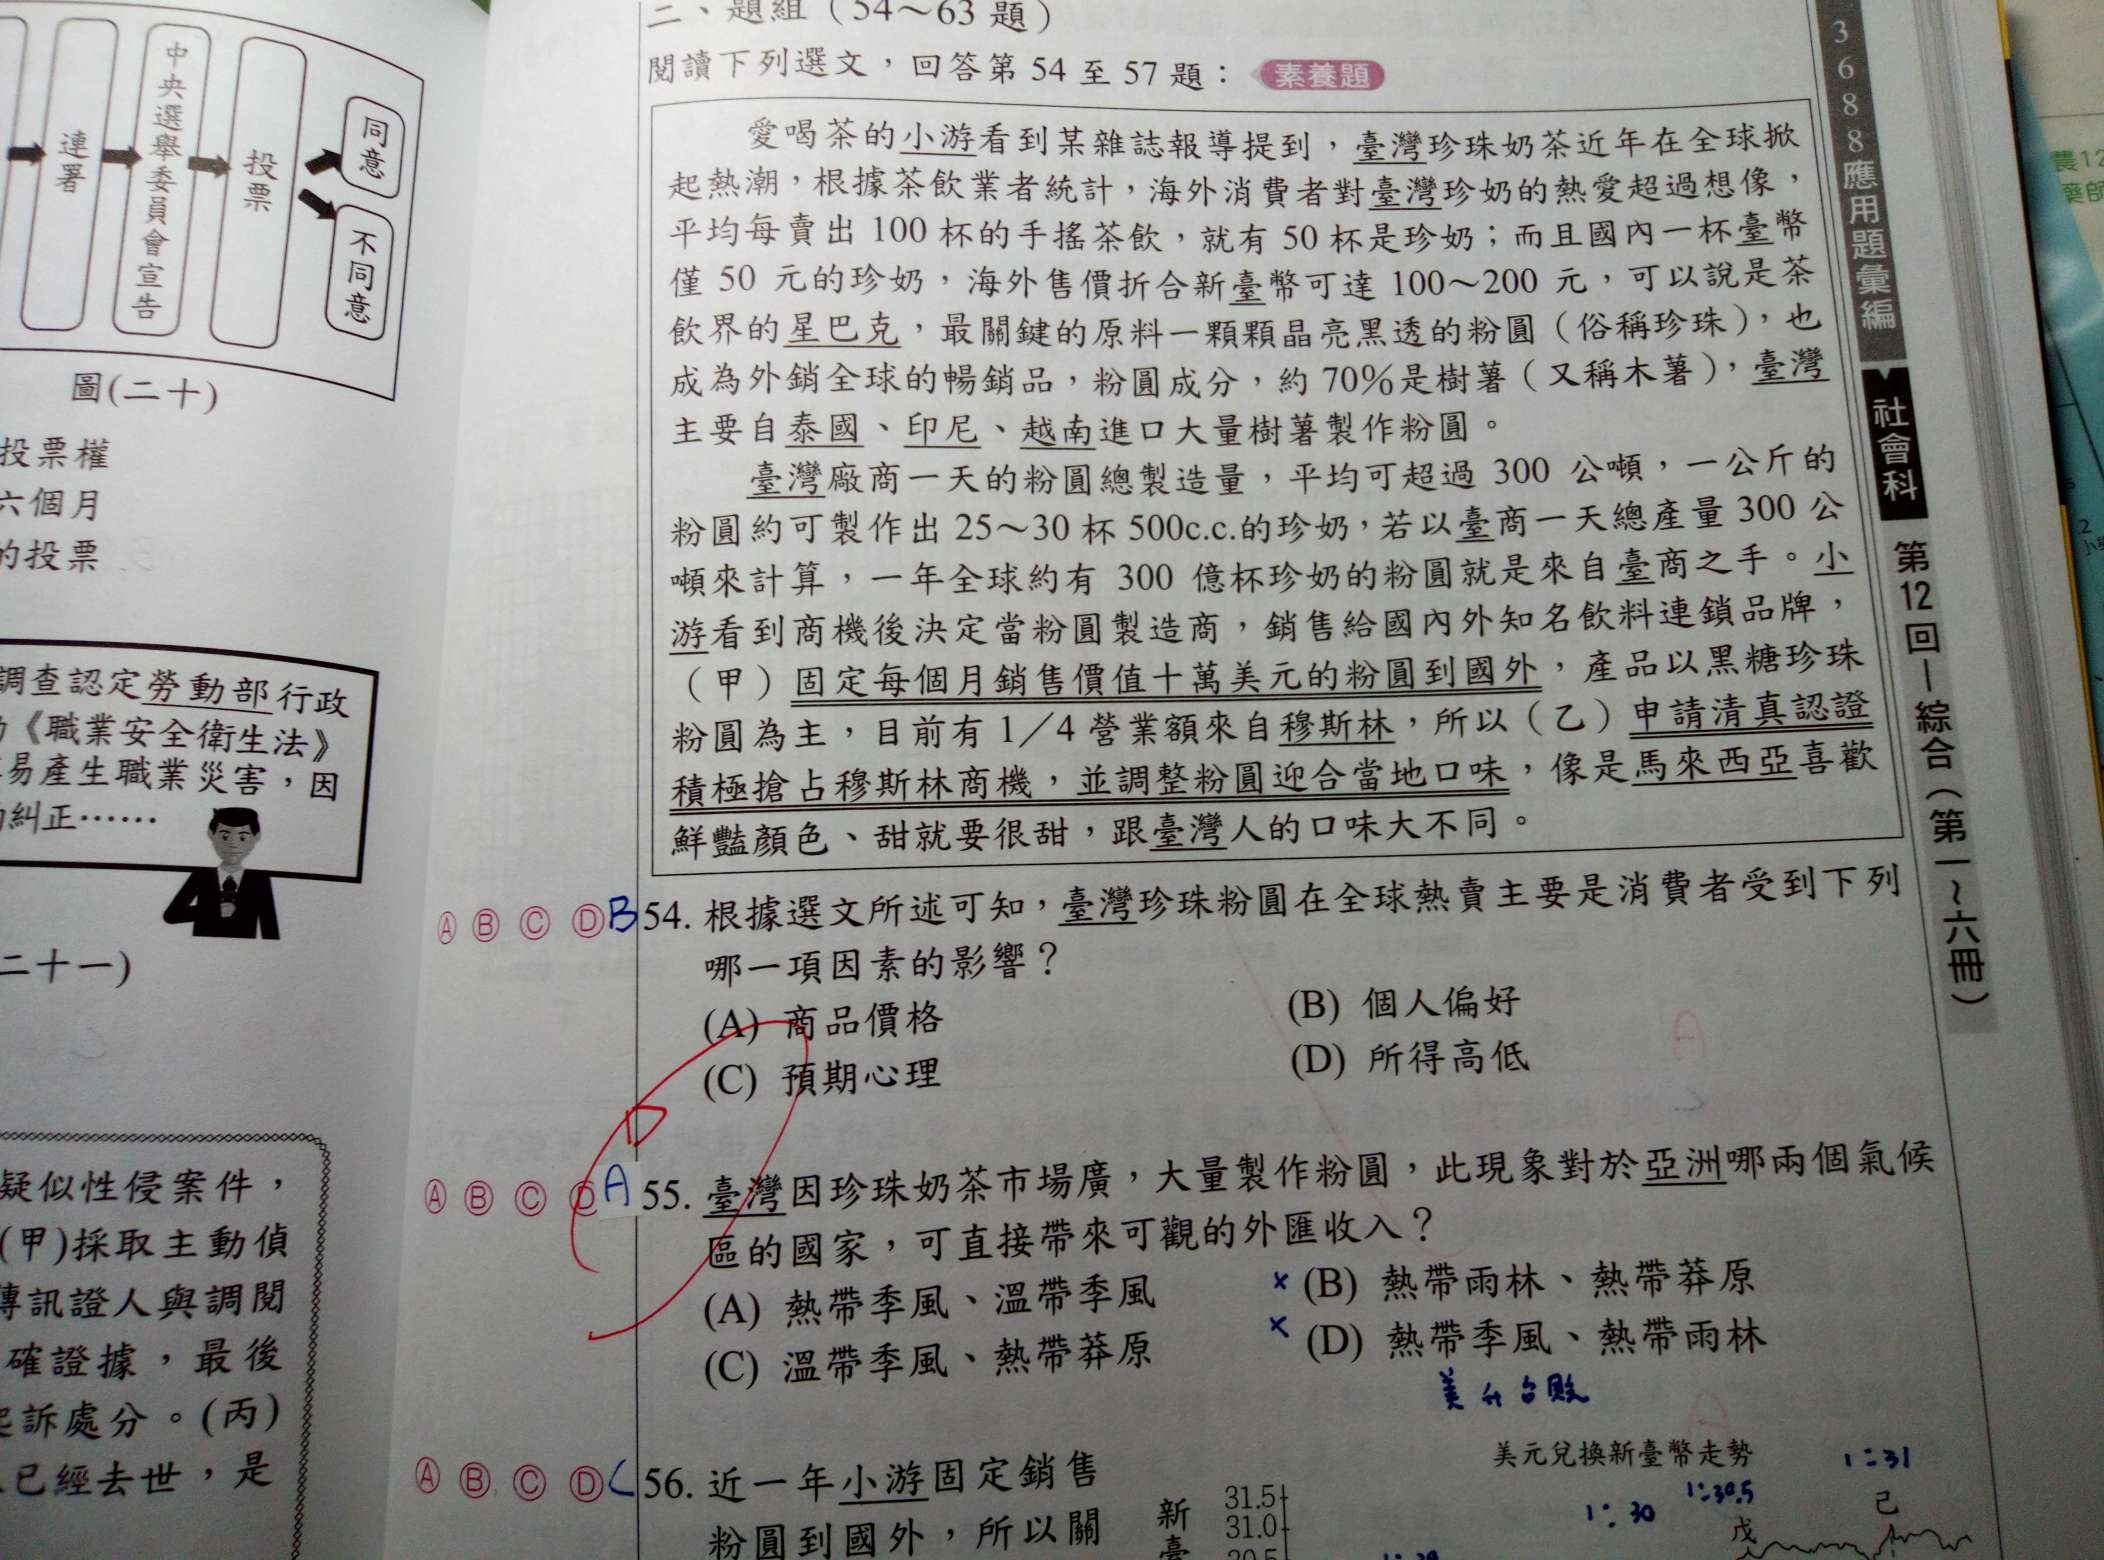 中央選舉委員會宣告
連署
投票
同意
不同意
圖(二十)
投票權
六個月
的投票
調查認定勞動部行政
《職業安全衛生法》
易產生職業災害，因
糾正……
二十一)
疑似性侵案件，
(甲)採取主動偵
傳訊證人與調閱
確證據，最後
起訴處分。(丙)
已經去世，是
二、題組（54～63題）
閱讀下列選文，回答第 54 至 57 題： 素養題
愛喝茶的小游看到某雜誌報導提到，臺灣珍珠奶茶近年在全球掀
起熱潮，根據茶飲業者統計，海外消費者對臺灣珍奶的熱愛超過想像，
平均每賣出 100 杯的手搖茶飲，就有 50 杯是珍奶；而且國內一杯臺幣
僅 50 元的珍奶，海外售價折合新臺幣可達 100～200 元，可以說是茶
飲界的星巴克，最關鍵的原料一顆顆晶亮黑透的粉圓（俗稱珍珠），也
成為外銷全球的暢銷品，粉圓成分，約 70%是樹薯（又稱木薯），臺灣
主要自泰國、印尼、越南進口大量樹薯製作粉圓。
臺灣廠商一天的粉圓總製造量，平均可超過 300 公噸，一公斤的
粉圓約可製作出 25～30 杯 500c.c.的珍奶，若以臺商一天總產量 300 公
噸來計算，一年全球約有 300 億杯珍奶的粉圓就是來自臺商之手。小
游看到商機後決定當粉圓製造商，銷售給國內外知名飲料連鎖品牌，
（甲）固定每個月銷售價值十萬美元的粉圓到國外，產品以黑糖珍珠
粉圓為主，目前有 1／4 營業額來自穆斯林，所以（乙）申請清真認證
積極搶占穆斯林商機，並調整粉圓迎合當地口味，像是馬來西亞喜歡
鮮豔顏色、甜就要很甜，跟臺灣人的口味大不同。
Ⓐ Ⓑ Ⓒ Ⓓ B 54. 根據選文所述可知，臺灣珍珠粉圓在全球熱賣主要是消費者受到下列
哪一項因素的影響？
(A) 商品價格 (B) 個人偏好
(C) 預期心理 (D) 所得高低
D
Ⓐ Ⓑ Ⓒ Ⓓ A 55. 臺灣因珍珠奶茶市場廣，大量製作粉圓，此現象對於亞洲哪兩個氣候
區的國家，可直接帶來可觀的外匯收入？
(A) 熱帶季風、溫帶季風 × (B) 熱帶雨林、熱帶莽原
(C) 溫帶季風、熱帶莽原 × (D) 熱帶季風、熱帶雨林
美升台貶
Ⓐ Ⓑ Ⓒ Ⓓ C 56. 近一年小游固定銷售
粉圓到國外，所以關
美元兌換新臺幣走勢
1:31
1:30.5
1:30
戊
己
新臺
31.5
31.0
3688應用題彙編
社會科
第12回－綜合（第一～六冊）